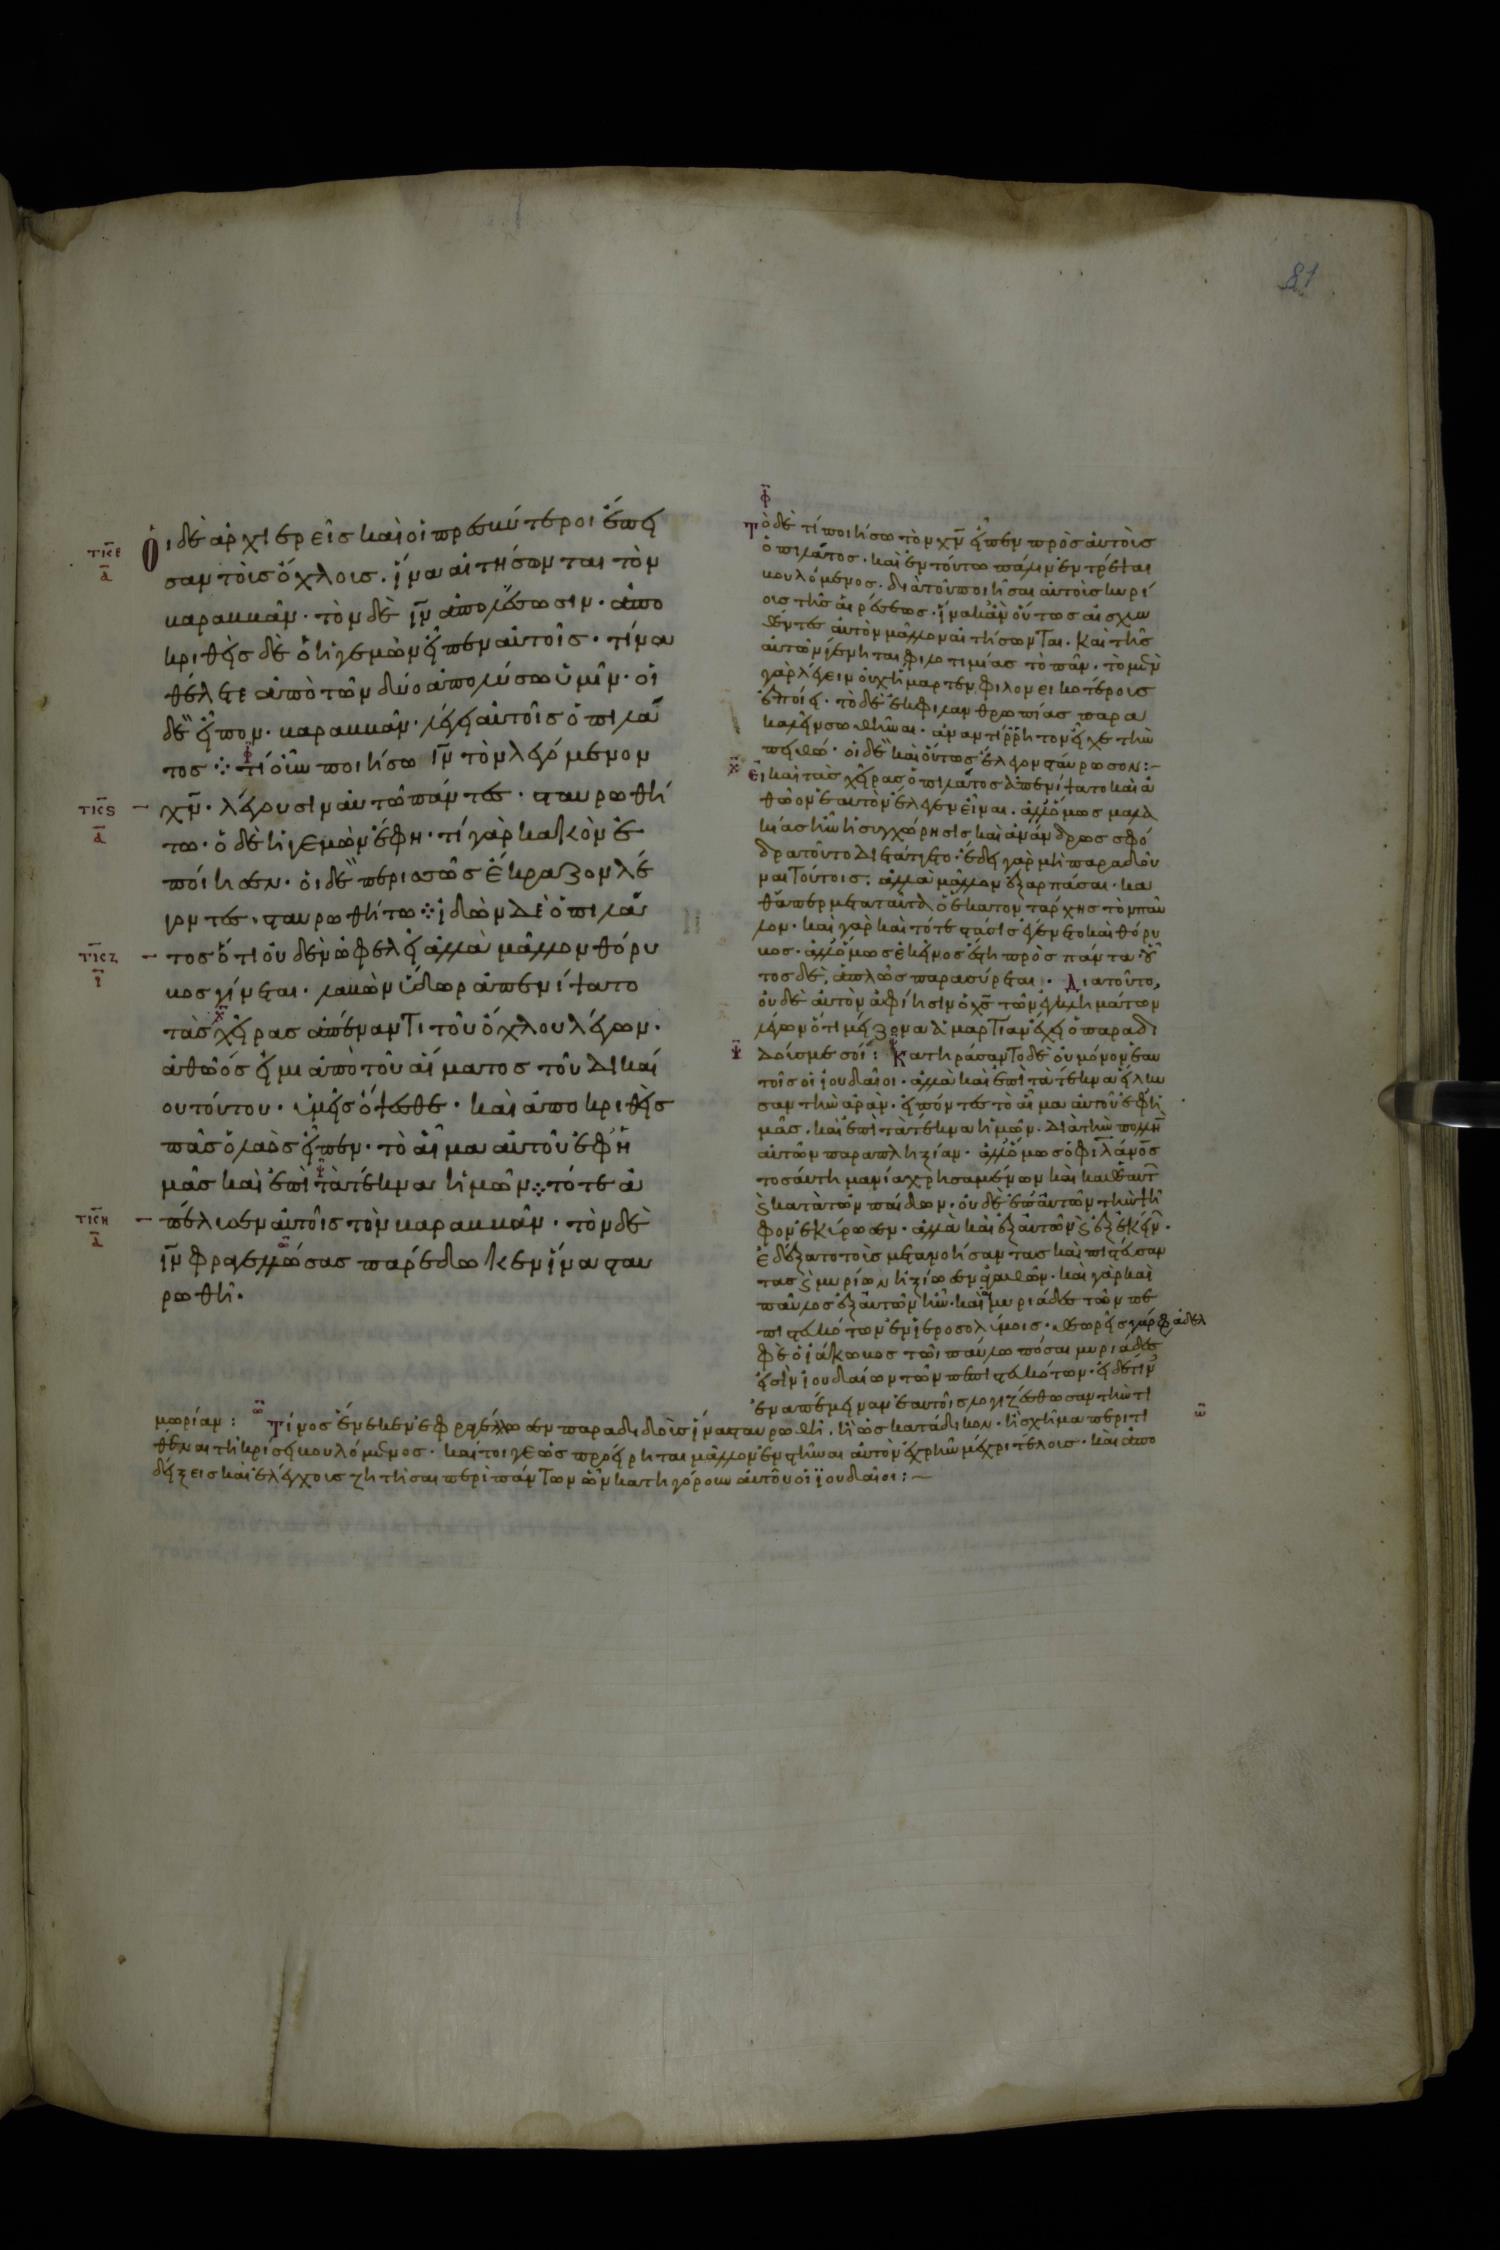 81
Οἱ δὲ ἀρχιερεῖς καὶ οἱ πρεσβύτεροι ἔπει
σαν τοὺς ὄχλους. ἵνα αἰτήσωνται τὸν
βαραββᾶν· τὸν δὲ ἰν̄ ἀπολέσωσιν· ἀπο
κριθεὶς δὲ ὁ ἡγεμὼν εἶπεν αὐτοῖς· τίνα
θέλετε ἀπὸ τῶν δύο ἀπολύσω ὑμῖν· οἱ
δὲ εἶπον· βαραββᾶν· λέγει αὐτοῖς ὁ πιλᾶ
τος ⁘ τί οὖν ποιήσω ἰν̄ τὸν λεγόμενον
χν̄· λέγουσιν αὐτῶ πάντες· σταυρωθή
τω· ὁ δὲ ἡγεμὼν ἔφη· τί γὰρ κακὸν ἐ
ποίησεν· οἱ δὲ περισσῶς ἔκραζον λέ
γοντες· σταυρωθήτω ⁘ ἰδὼν δὲ ὁ πιλᾶ
τος ὅτι οὐδὲν ὠφελεῖ ἀλλὰ μᾶλλον θόρυ
βος γίνεται· λαβὼν ὕδωρ ἀπενίψατο
τὰς χεῖρας ἀπέναντι τοῦ ὄχλου λέγων·
ἀθῶός εἰμι ἀπὸ τοῦ αἵματος τοῦ δικαί
ου τούτου· ὑμεῖς ὄψεσθε· καὶ ἀποκριθεὶς
πᾶς ὁ λαὸς εἶπεν· τὸ αἷμα αὐτοῦ ἐφ ἡ
μᾶς καὶ ἐπὶ τὰ τέκνα ἡμῶν ⁘ τότε ἀ
πέλυσεν αὐτοῖς τὸν βαραββᾶν· τὸν δὲ
ἰν̄ φραγελλώσας παρέδωκεν ἵνα σταυ
ρωθῆ·
τκε
α
τκς
α
τκζ
ι
τκη
α
φ
Τὸ δὲ τί ποιήσω τὸν χν̄ εἶπεν πρὸς αὐτοὺς
ὁ πιλᾶτος· καὶ ἐν τούτω πάλιν ἐντρέψαι
βουλόμενος· διὰ τοῦ ποιῆσαι αὐτοὺς κυρί
ους τῆς αἱρέσεως· ἵνα κἂν οὕτως αἰσχυν
θέντες αὐτὸν μᾶλλον αἰτήσωνται· καὶ τῆς
αὐτῶν γένηται φιλοτιμίας τὸ πᾶν· τὸ μὲν
γὰρ λέγειν οὐχ ἥμαρτεν φιλονεικοτέρους
ἐποίει· τὸ δὲ ἐκ φιλανθρωπίας παρα
καλεῖν σωθῆναι· ἀναντίρρητον εἶχε τὴν
πειθώ· οἱ δὲ καὶ οὕτως ἔλεγον σταύρωσον:–
χ Εἰ καὶ τὰς χεῖρας ὁ πιλᾶτος ἀπενίψατο καὶ ἀ
θῶον ἑαυτὸν ἔλεγεν εἶναι· ἀλλ' ὅμως μαλα
κίας ἦν ἡ συγχώρησις καὶ ἀνάνδρως σφό
δρα τοῦτο διεπράττετο· ἔδει γὰρ μὴ παραδοῦ
ναι τούτοις· ἀλλὰ μᾶλλον ἐξαρπάσαι· κα
θάπερ μετὰ ταῦτα ὁ ἑκατοντάρχης τὸν παῦ
λον· καὶ γὰρ καὶ τότε στάσις ἐγένετο καὶ θόρυ
βος· ἀλλ' ὅμως ἐκεῖνος ἔστη πρὸς πάντα· οὗ
τος δὲ, ἁπλῶς παρασύρεται· Διατοῦτο,
οὐδὲ αὐτὸν ἀφίησιν ὁ χς̄ τῶν ἐγκλημάτων
λέγων ὅτι μείζονα ἁμαρτίαν ἔχει ὁ παραδι
ψ δούς με σοί: Κατηράσαντο δὲ οὐ μόνον ἑαυ
τοῖς οἱ ἰουδαῖοι· ἀλλὰ καὶ ἐπὶ τὰ τέκνα εἵλκυ
σαν τὴν ἀράν· εἰπόντες τὸ αἷμα αὐτοῦ ἐφ ἡ
μᾶς· καὶ ἐπὶ τὰ τέκνα ἡμῶν· διὰ τὴν πολλὴν
αὐτῶν παραπληξίαν· ἀλλ' ὅμως ὁ φιλάνος
τοσαύτη μανία χρησαμένων καὶ καθ' ἑαυτ
ϛ κατὰ τῶν παίδων· οὐδὲ ἐπ' αὐτῶν τὴν ψῆ
φον ἐκύρωσεν· ἀλλὰ καὶ ἐξ αὐτῶν ϛ ἐξ ἐκείν·
ἐδέξατο τοὺς μετανοήσαντας καὶ πιστεύσαν
τας ϛ μυρίων ἠξίωσεν ἀγαθῶν· καὶ γὰρ καὶ
παῦλος ἐξ αὐτῶν ἦν· καὶ αἱ μυριάδες τῶν πε
πιστευκότων ἐν ἱεροσολύμοις· θεωρεῖς γάρ φ ἀδελ
φὲ ὁ ἰάκωβος τῶι παύλω πόσαι μυριάδες
εἰσὶν ἰουδαίων τῶν πεπιστευκότων· εἰ δέ τιν
ἐναπέμειναν ἑαυτοῖς λογιζέσθωσαν τὴν τι
μωρίαν: ω Τίνος ἕνεκεν ἐφραγέλλωσεν παραδιδοὺς ἵνα σταυρωθῆ· ἢ ὡς κατάδικον· ἢ σχῆμα περιτι
θέναι τῆ κρίσει βουλόμενος· καίτοι γε ὡς προείρηται μᾶλλον ἐνστῆναι αὐτὸν ἐχρῆν μέχρι τέλους· καὶ ἀπο
δείξεις καὶ ἐλέγχους ζητῆσαι περὶ πάντων ὧν κατηγόρουν αὐτοῦ οἱ ἰουδαῖοι:–